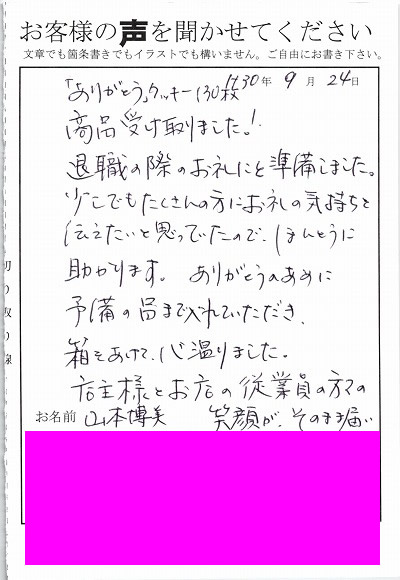 お客様の声を聞かせてください
文章でも箇条書きでもイラストでも構いません。ご自由にお書き下さい。
H30年 9月 24日
「ありがとう」クッキー130枚
商品受け取りました。!
退職の際のお礼にと準備しました。
少しでもたくさんの方にお礼の気持ちを
伝えたいと思っていたので、ほんとうに
助かります。 ありがとうのあめに
予備の品まで入れていただき、
箱をあけて、心温りました。
店主様とお店の従業員の方々の
お名前 山本博美 笑顔が、そのまま届い
切り取り線